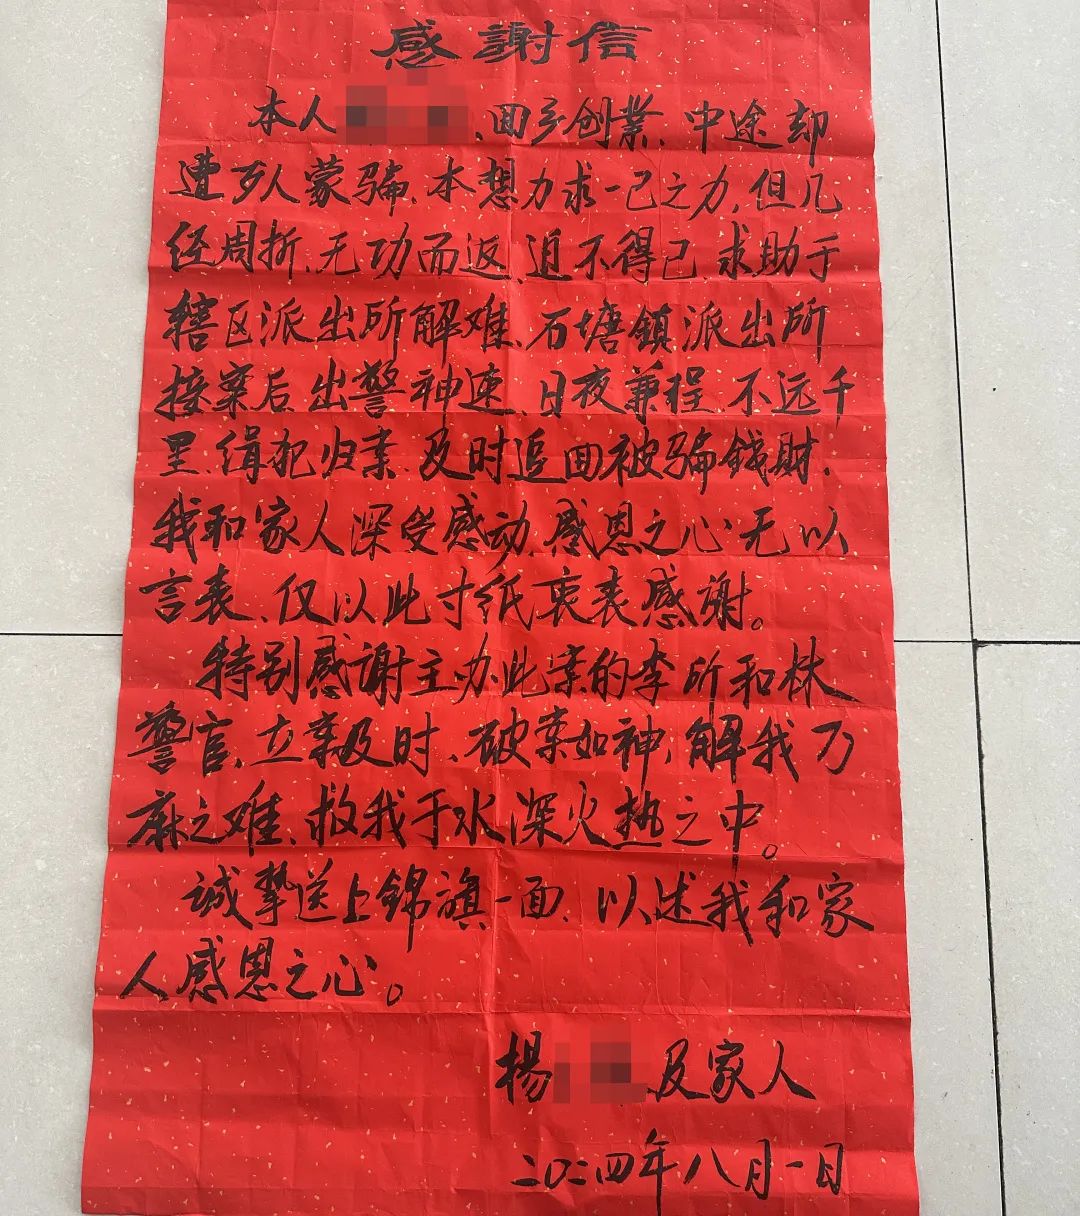 感謝信
本人 、回乡创業、中途却
遭歹人蒙骗、本想力求一己之力、但几
经周折、无功而返、迫不得已、求助于
辖区派出所解难、石塘鎮派出所
接案后、出警神速、日夜兼程、不远千
里、缉犯归案、及时追回被骗钱财.
我和家人深受感动、感恩之心无以
言表、仅以此寸纸衷表感谢。
特别感谢主办此案的李所和林
警官、立案及时、破案如神、解我万
麻之难、救我于水深火热之中。
诚挚送上錦旗一面、以述我和家
人感恩之心。
楊 及家人
二〇二四年八月一日